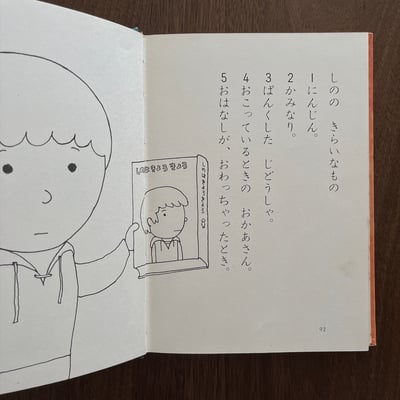 しのの きらいなもの
1 にんじん。
2 かみなり。
3 ぱんくした じどうしゃ。
4 おこっているときの おかあさん。
5 おはなしが、おわっちゃったとき。
92